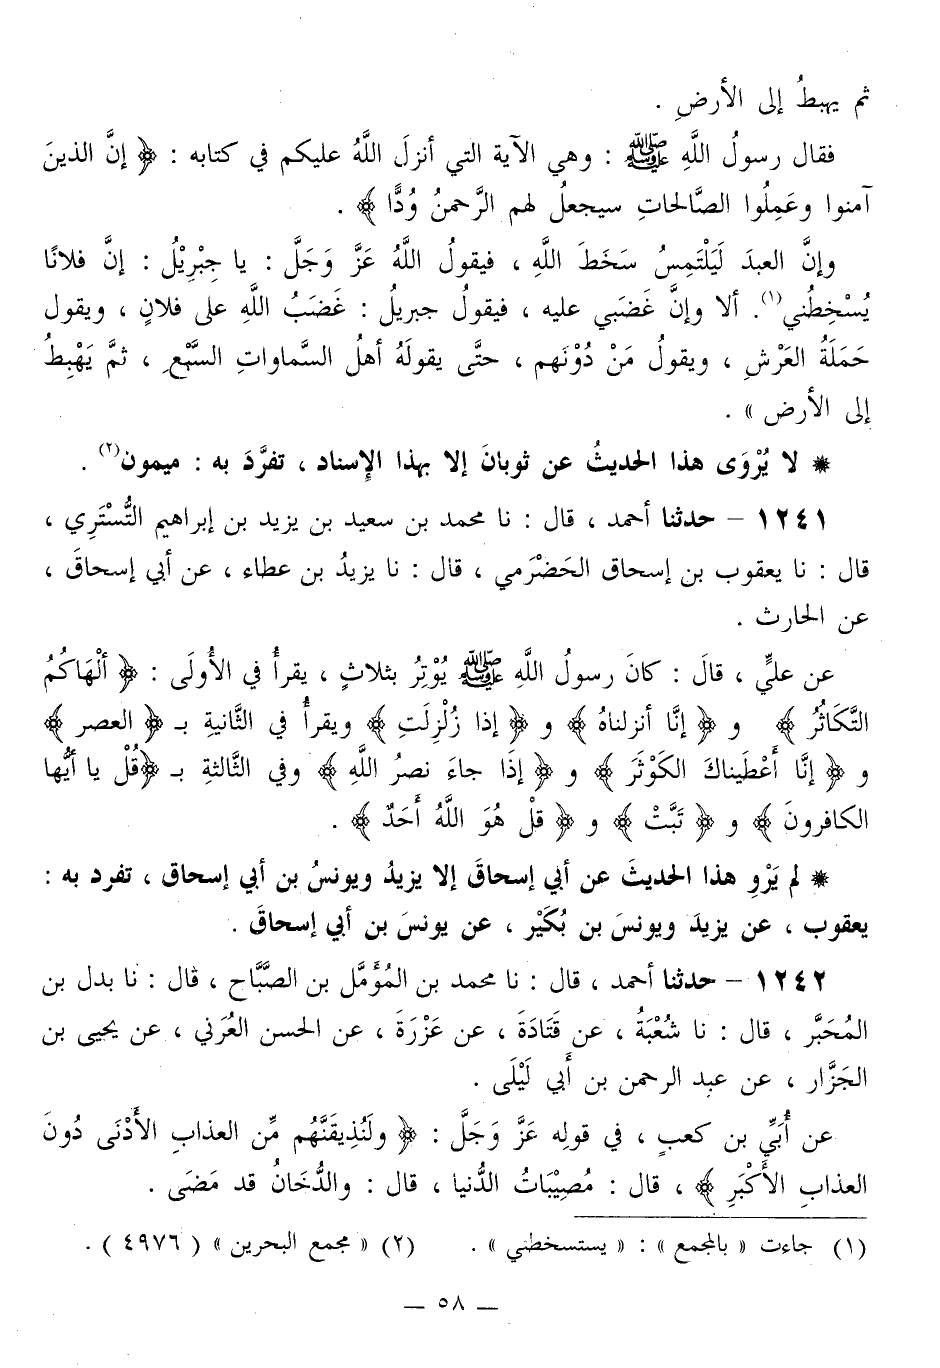 ثم يهبطُ إلى الأرضِ .
فقال رسولُ اللَّهِ ﷺ : وهي الآية التي أنزلَ اللَّهُ عليكم في كتابه : ﴿ إنَّ الذينَ
آمنوا وعَمِلُوا الصَّالحاتِ سيجعلُ لهم الرَّحمنُ وُدًّا ﴾ .
وإنَّ العبدَ لَيَلْتَمِسُ سَخَطَ اللَّهِ ، فيقولُ اللَّهُ عَزَّ وَجَلَّ : يا جِبْرِيْلُ : إنَّ فلانًا
يُسْخِطُني(١). ألا وإنَّ غَضَبي عليه ، فيقولُ جبريلُ : غَضَبُ اللَّهِ على فلانٍ ، ويقول
حَمَلَةُ العَرْشِ ، ويقولُ مَنْ دُوْنَهم ، حتَّى يقولَهُ أهلُ السَّماواتِ السَّبْعِ ، ثمَّ يَهْبِطُ
إلى الأرض » .
* لا يُرْوَى هذا الحديثُ عن ثوبانَ إلا بهذا الإِسناد ، تفرَّدَ به : ميمون(٢) .
١٢٤١ – حدثنا أحمد ، قال : نا محمد بن سعيد بن يزيد بن إبراهيم التُّسْتَرِي ،
قال : نا يعقوب بن إسحاق الحَضْرَمي ، قال : نا يزيدُ بن عطاء ، عن أبي إسحاقَ ،
عن الحارث .
عن عليٍّ ، قالَ : كانَ رسولُ اللَّهِ ﷺ يُوْتِرُ بثلاثٍ ، يقرأُ في الأُولَى : ﴿ ألْهَاكُمُ
التَّكَاثُرُ ﴾ و ﴿ إنَّا أنزلناهُ ﴾ و ﴿ إذا زُلْزِلَتِ ﴾ ويقرأُ في الثَّانيةِ بـ ﴿ العصر ﴾
و ﴿ إنَّا أَعْطَيناكَ الكَوْثَرَ ﴾ و ﴿ إذَا جاءَ نصرُ اللَّهِ ﴾ وفي الثَّالثةِ بـ ﴿قُلْ يا أيُّها
الكافرونَ ﴾ و ﴿ تَبَّتْ ﴾ و ﴿ قلْ هُوَ اللَّهُ أَحَدٌ ﴾ .
* لم يَرْوِ هذا الحديثَ عن أبي إسحاقَ إلا يزيدُ ويونسُ بن أبي إسحاق ، تفرد به :
يعقوب ، عن يزيدَ ويونسَ بن بُكَيْر ، عن يونسَ بن أبي إسحاقَ .
١٢٤٢ – حدثنا أحمد ، قال : نا محمد بن المُؤَمَّل بن الصَّبَّاح ، قال : نا بدل بن
المُحَبَّر ، قال : نا شُعْبَةُ ، عن قَتَادَةَ ، عن عَزْرَةَ ، عن الحسن العُرَني ، عن يحيى بن
الجَزَّار ، عن عبد الرحمن بن أَبي لَيْلَى .
عن أُبَيِّ بن كعبٍ ، في قولِه عَزَّ وَجَلَّ : ﴿ ولَنُذِيقَنَّهُم مِّن العذابِ الأَدْنَى دُونَ
العذابِ الأَكْبَرِ ﴾ ، قال : مُصِيْبَاتُ الدُّنيا ، قال : والدُّخَانُ قد مَضَى .
(١) جاءت « بالمجمع » : « يستسخطني » . (٢) « مجمع البحرين » ( ٤٩٧٦ ) .
— ٥٨ —